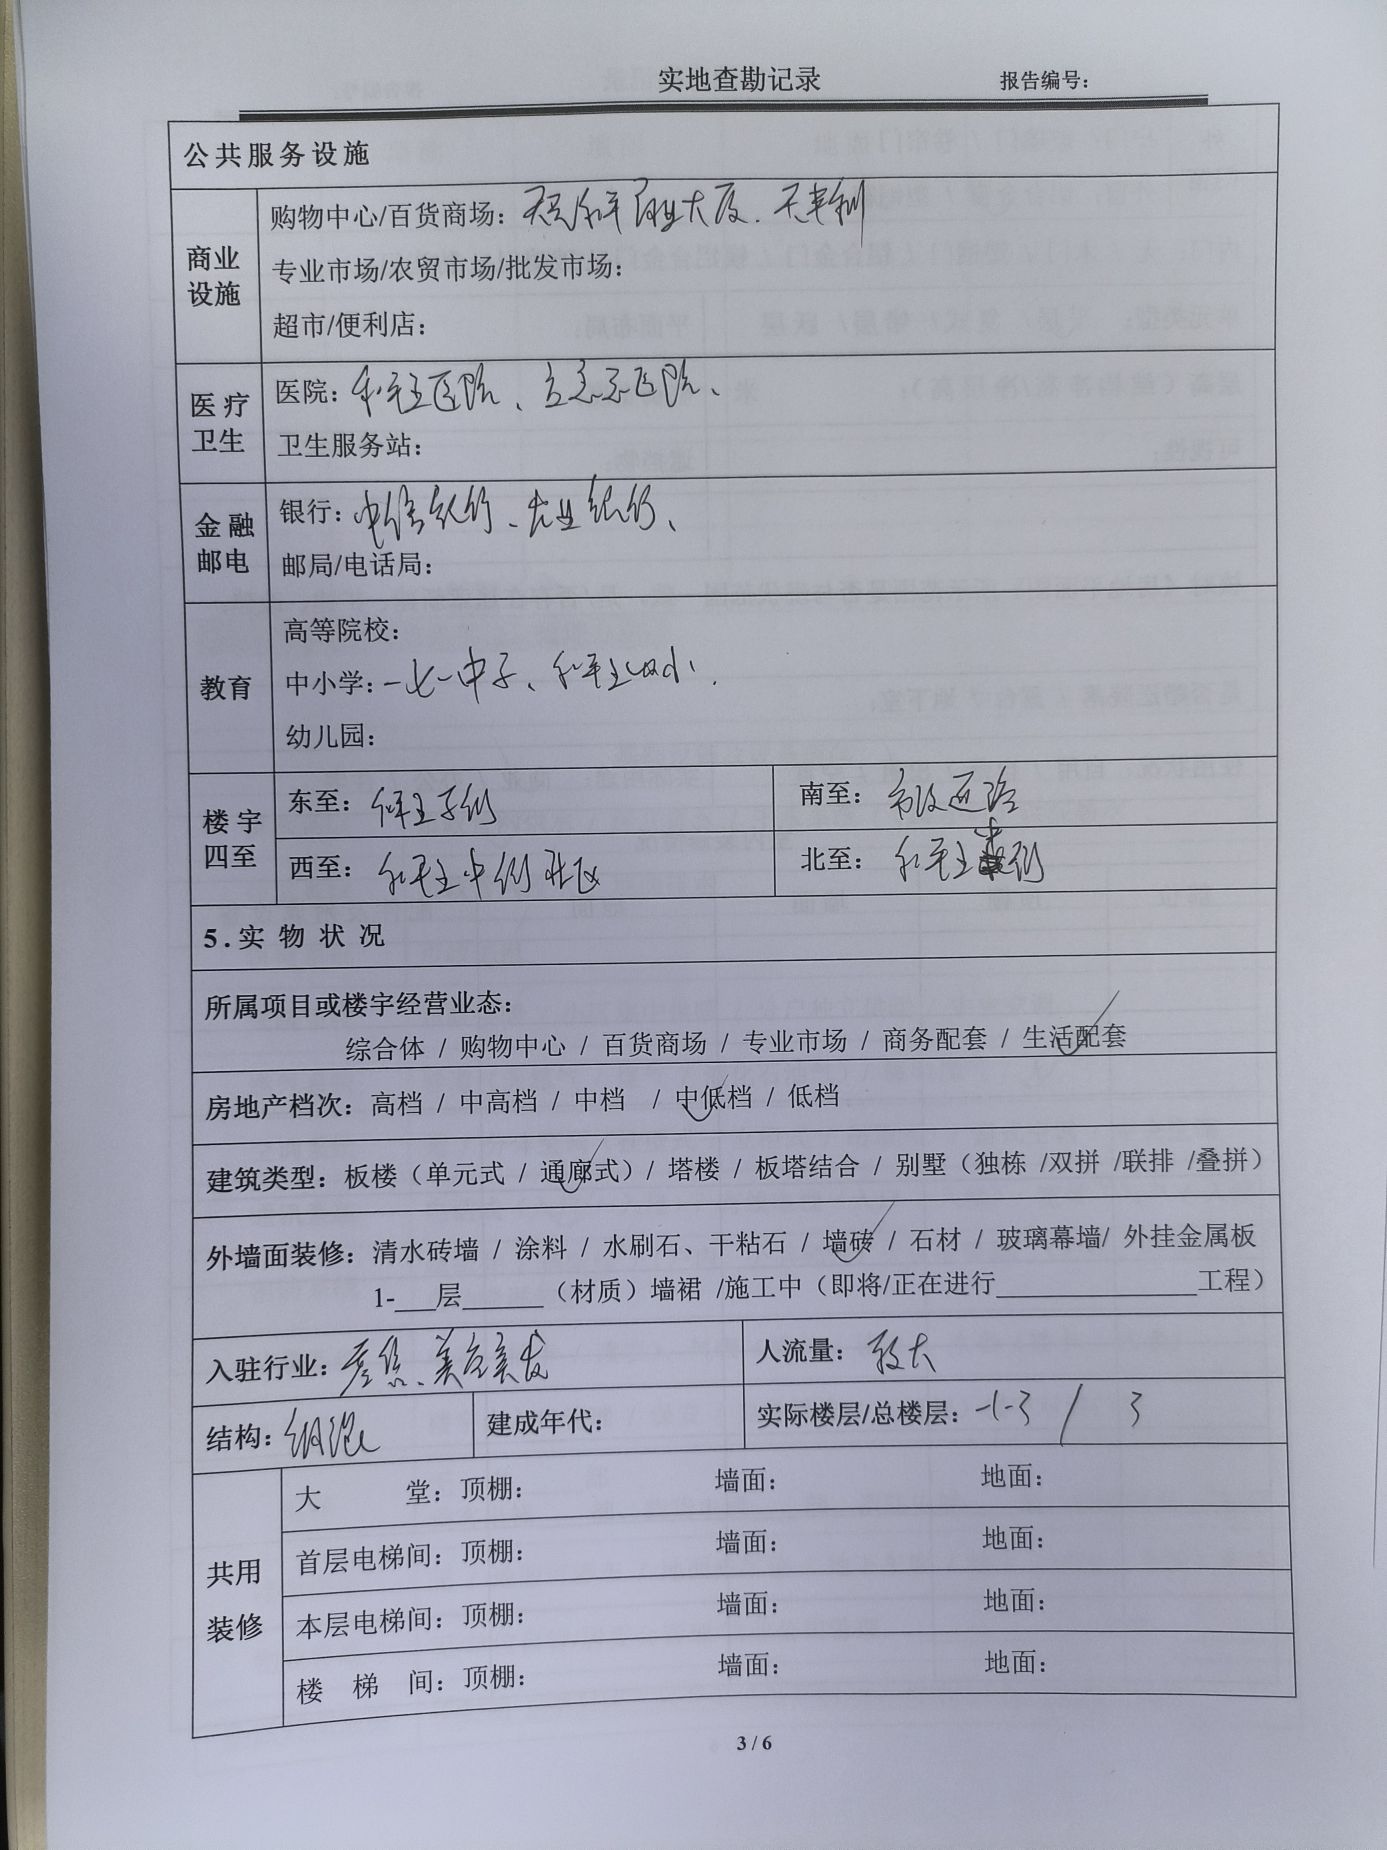 实地查勘记录 报告编号：
公共服务设施
商业设施
购物中心/百货商场： 百业大厦、天丰利
专业市场/农贸市场/批发市场：
超市/便利店：
医疗卫生
医院： 医院、 医院、
卫生服务站：
金融邮电
银行：中信银行、农业银行、
邮局/电话局：
教育
高等院校：
中小学：一七一中学、和平里四小.
幼儿园：
楼宇四至
东至： 南至：
西至：和平里中街 北至：和平里 街
5.实 物 状 况
所属项目或楼宇经营业态：
综合体 / 购物中心 / 百货商场 / 专业市场 / 商务配套 / 生活配套
房地产档次：高档 / 中高档 / 中档 / 中低档 / 低档
建筑类型：板楼（单元式 / 通廊式）/ 塔楼 / 板塔结合 / 别墅（独栋 /双拼 /联排 /叠拼）
外墙面装修：清水砖墙 / 涂料 / 水刷石、干粘石 / 墙砖 / 石材 / 玻璃幕墙/ 外挂金属板
1-___层______（材质）墙裙 /施工中（即将/正在进行_______________工程）
入驻行业： 、美容美发 人流量：较大
结构：钢混 建成年代： 实际楼层/总楼层：-1-3 / 3
共用装修
大 堂：顶棚： 墙面： 地面：
首层电梯间：顶棚： 墙面： 地面：
本层电梯间：顶棚： 墙面： 地面：
楼 梯 间：顶棚： 墙面： 地面：
3 / 6